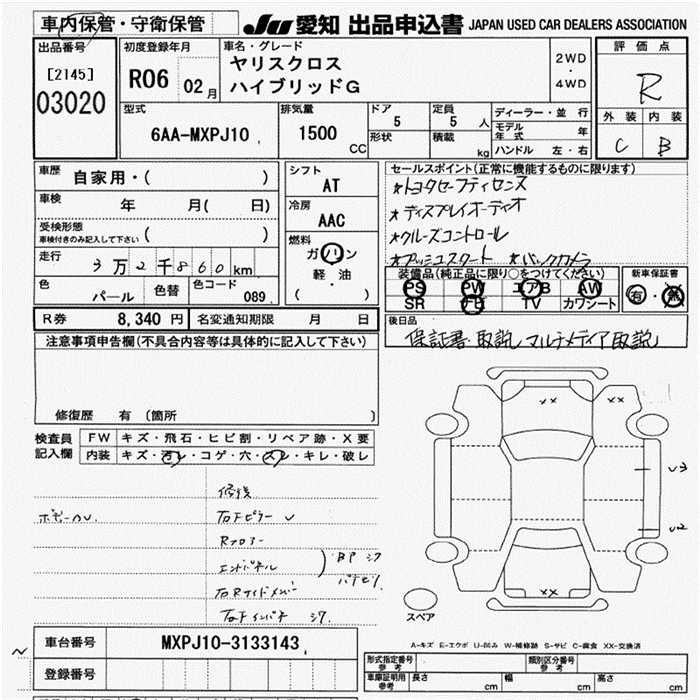 車内保管・守衛保管
JU 愛知 出品申込書 JAPAN USED CAR DEALERS ASSOCIATION
出品番号
[2145]
03020
初度登録年月
R06 02月
車名・グレード
ヤリスクロス
ハイブリッドG
2WD
・
4WD
評価点
R
外装 内装
C B
型式
6AA-MXPJ10
排気量
1500
CC
ドア
5
形状
定員
5 人
積載
kg
ディーラー・並行
モデル年式 年
ハンドル 左・右
車歴
自家用・( )
車検
年 月( 日)
受検形態
車検付きのみ記入して下さい ( )
走行
3万2千860km
色
パール
色替
色コード
089
シフト
AT
冷房
AAC
燃料
ガソリン
軽・油
( )
セールスポイント(正常に機能するものに限ります)
*トヨタセーフティセンス
*ディスプレイオーディオ
*クルーズコントロール
*プッシュスタート *バックカメラ
装備品(純正品に限り○をつけてください)
PS PW エアB AW
SR ナビ TV カワシート
新車保証書
有・無
R券 8,340円 名変通知期限 月 日
後日品
保証書・取説 マルチメディア取説
注意事項申告欄(不具合内容等は具体的に記入して下さい)
修復歴 有 (箇所 )
検査員
記入欄
FW キズ・飛石・ヒビ割・リペア跡・X要
内装 キズ・汚レ・コゲ・穴・スレ・キレ・破レ
修復
右Fピラー
Rフロアー
エンドパネル
右Rサイドメンバー
右Fインパネ
××
××
U3
U2
スペア
A-キズ E-エクボ U-凹み W-補修跡 S-サビ C-腐食 XX-交換済
車台番号 MXPJ10-3133143
登録番号
形式指定番号
参考
類別区分番号
参考
車庫証明用
参考
長さ cm 幅 cm 高さ cm